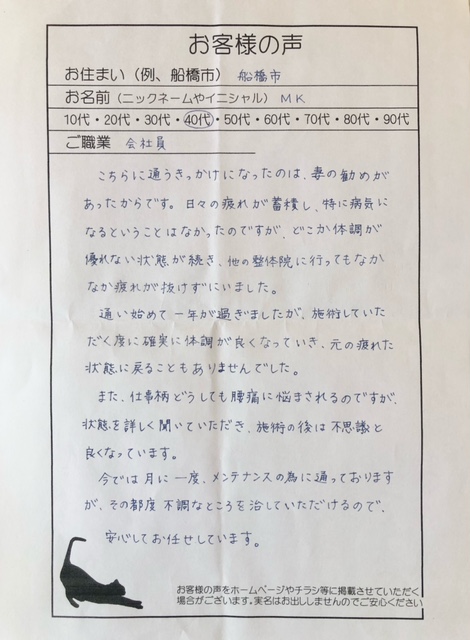 お客様の声
お住まい（例、船橋市） 船橋市
お名前（ニックネームやイニシャル） MK
10代・20代・30代・40代・50代・60代・70代・80代・90代
ご職業 会社員
こちらに通うきっかけになったのは、妻の勧めが
あったからです。日々の疲れが蓄積し、特に病気に
なるということはなかったのですが、どこか体調が
優れない状態が続き、他の整体院に行ってもなか
なか疲れが抜けずにいました。
通い始めて一年が過ぎましたが、施術していた
だく度に確実に体調が良くなっていき、元の疲れた
状態に戻ることもありませんでした。
また、仕事柄どうしても腰痛に悩まされるのですが、
状態を詳しく聞いていただき、施術の後は不思議と
良くなっています。
今では月に一度、メンテナンスの為に通っております
が、その都度不調なところを治していただけるので、
安心してお任せしています。
お客様の声をホームページやチラシ等に掲載させていただく
場合がございます。実名はお出ししませんのでご安心ください